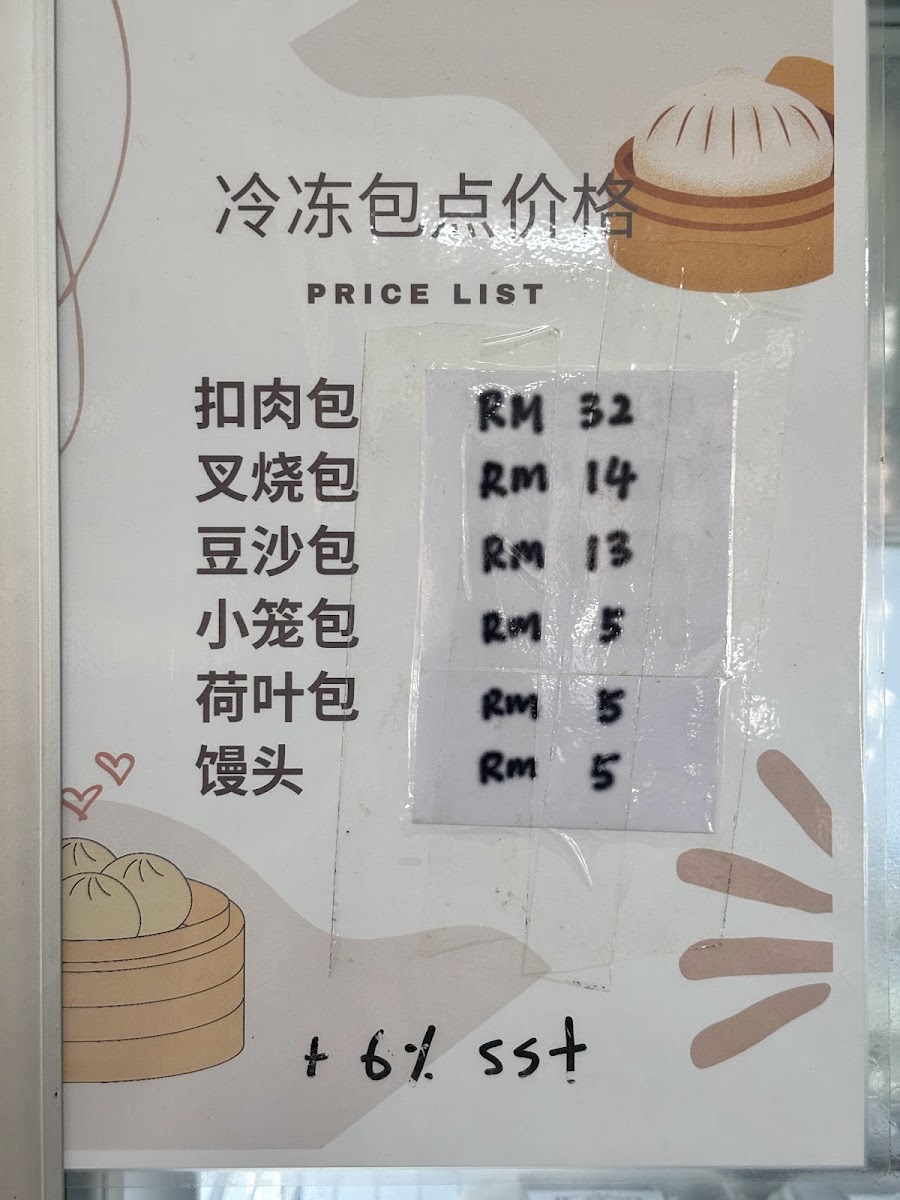 冷冻包点价格
PRICE LIST
扣肉包 RM 32
叉烧包 RM 14
豆沙包 RM 13
小笼包 Rm 5
荷叶包 Rm 5
馒头 Rm 5
+ 6% sst